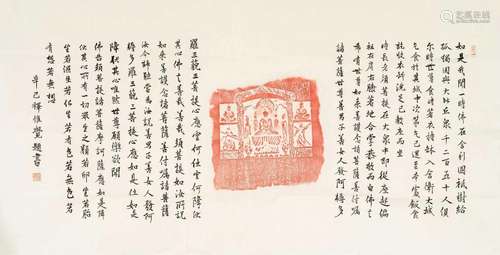 如是我聞一時佛在舍利國祇樹給
孤獨園與大比丘眾千二百五十人俱
爾時世尊食時著衣持鉢入舍衛大城
乞食於其城中次第乞已還至本處飯食
訖收衣鉢洗足已敷座而坐
時長老須菩提在大眾中即從座起偏
袒右肩右膝著地合掌恭敬而白佛言
希有世尊如來善護念諸菩薩善付囑
諸菩薩世尊善男子善女人發阿耨多
羅三藐三菩提心應云何住云何降伏
其心佛言善哉善哉須菩提如汝所說
如來善護念諸菩薩善付囑諸菩薩
汝今諦聽當為汝說善男子善女人發阿
耨多羅三藐三菩提心應如是住如是
降伏其心唯然世尊願樂欲聞
佛告須菩提諸菩薩摩訶薩應如是降
伏其心所有一切眾生之類若卵生若胎
生若濕生若化生若有色若無色若
有想若無想
辛巳釋惟覺題書